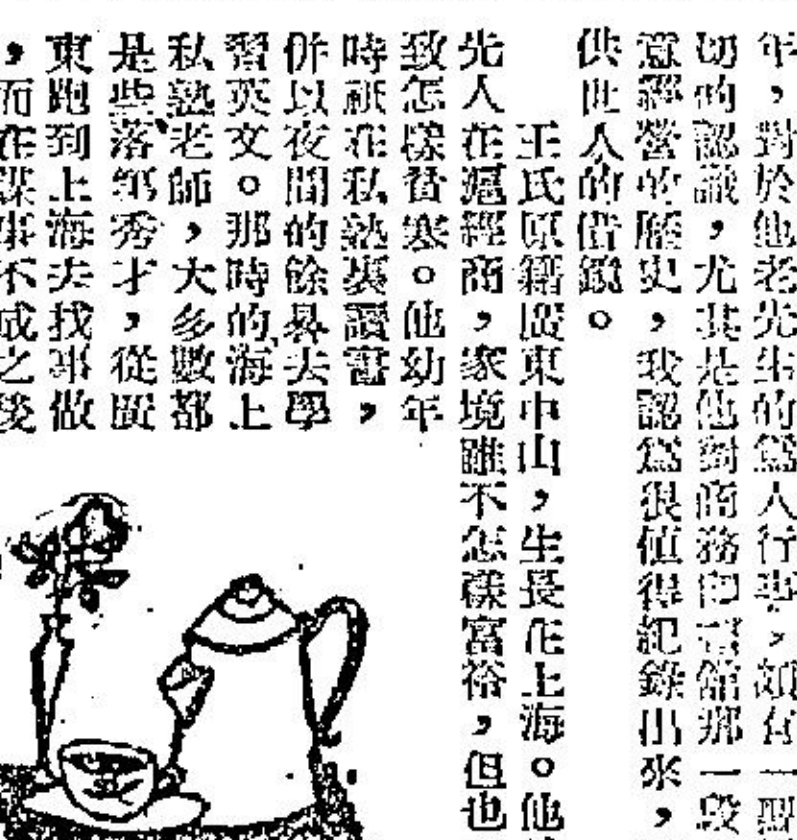 年，對於他老先生的爲人行事，頗有一點
切的認識，尤其是他對商務印書館那一段
意經營的歷史，我認爲很值得紀錄出來，
供世人的借鏡。
王氏原籍廣東中山，生長在上海。他
先人在滬經商，家境雖不怎樣富裕，但也
致怎樣貧寒。他幼年
時祇在私塾裏讀書，
併以夜間的餘晷去學
習英文。那時的海上
私塾老師，大多數都
是些落第秀才，從廣
東跑到上海去找事做
，而在謀事不成之後